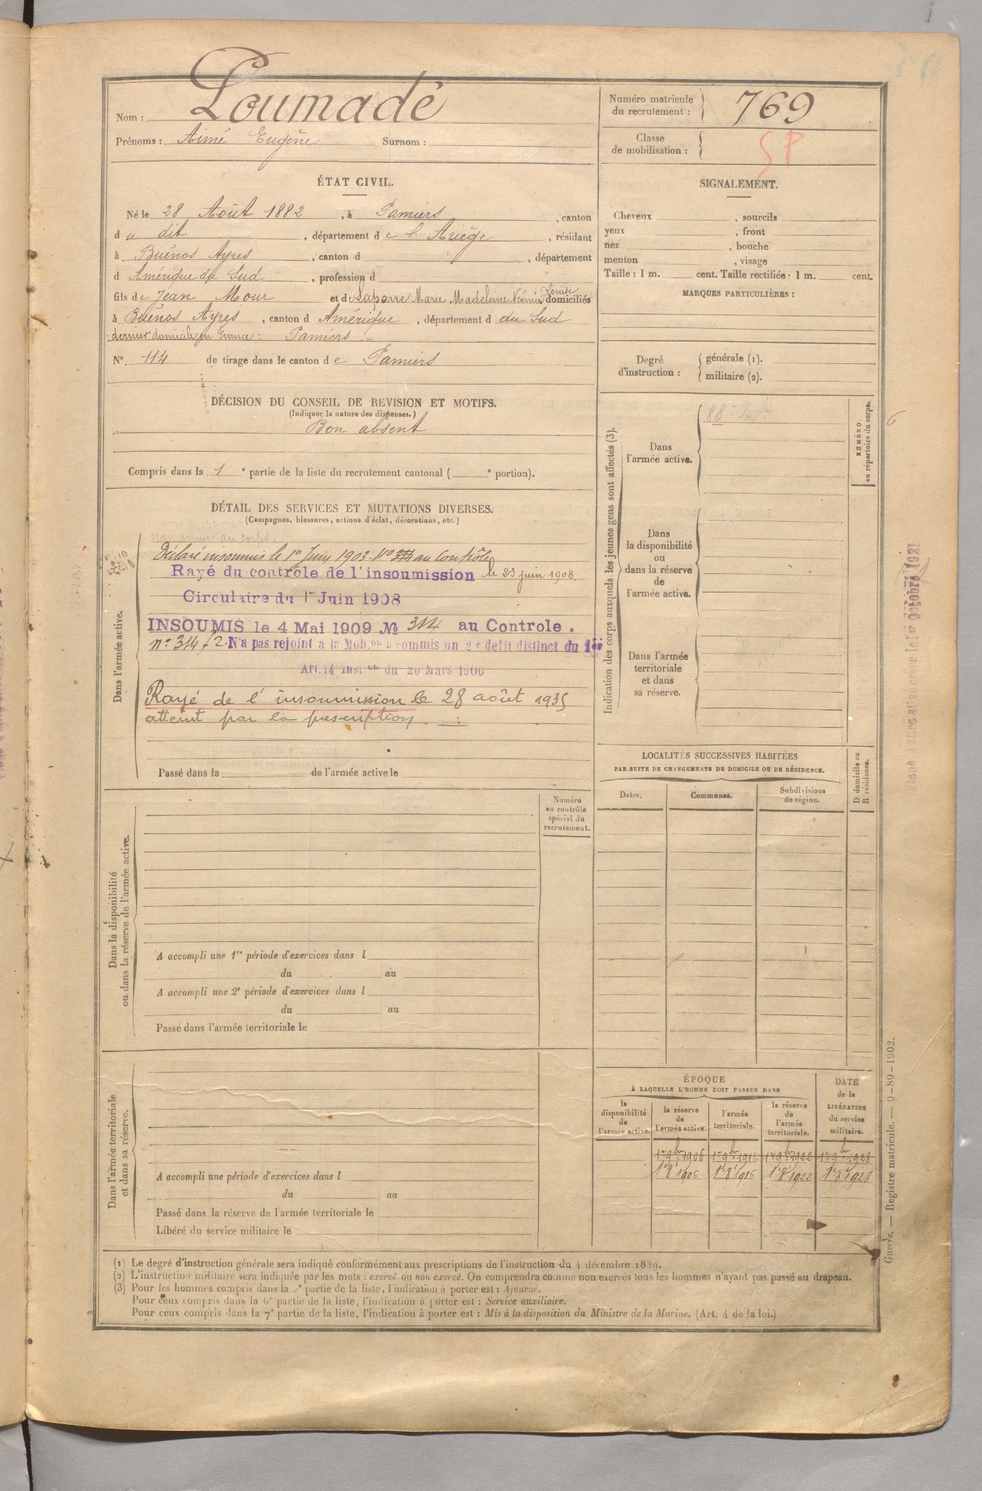 Nom : Loumadé
Prénoms : Aimé Eugène Surnom :
Numéro matricule du recrutement : 769
Classe de mobilisation :
SP
ÉTAT CIVIL.
Né le 28 Août 1882, à Pamiers, canton
du dit, département de l'Ariège, résidant
à Buénos Ayres, canton d , département
d Amérique du Sud, profession d
fils de Jean Mour et de Laparre Marie Madeleine Noémie Louise domiciliés
à Buénos Ayres, canton d Amérique, département d du Sud
dernier domicile en France : Pamiers
N° 114 de tirage dans le canton de Pamiers
SIGNALEMENT.
Cheveux , sourcils
yeux , front
nez , bouche
menton , visage
Taille : 1 m. cent. Taille rectifiée : 1 m. cent.
MARQUES PARTICULIÈRES :
Degré d'instruction : générale (1).
militaire (2).
DÉCISION DU CONSEIL DE REVISION ET MOTIFS.
(Indiquer la nature des dispenses.)
Bon absent
Compris dans la 1e partie de la liste du recrutement cantonal ( e portion).
DÉTAIL DES SERVICES ET MUTATIONS DIVERSES.
(Campagnes, blessures, actions d'éclat, décorations, etc.)
Dans l'armée active.
Déclaré insoumis le 1er Juin 1903. N° au Contrôle
Rayé du contrôle de l'insoumission le 23 juin 1908.
Circulaire du 1er Juin 1908
INSOUMIS le 4 Mai 1909 № 314 au Controle.
n° 314 f2 N'a pas rejoint à la Mob.on a commis un 2e délit distinct du 1er
Art. 14 Inst.on du 20 Mars 1906
Rayé de l'insoumission le 28 août 1935
atteint par la prescription
Passé dans la de l'armée active le
Indication des corps auxquels les jeunes gens sont affectés (3).
NUMÉRO au répertoire du corps.
6
Dans l'armée active.
Dans la disponibilité ou dans la réserve de l'armée active.
Dans l'armée territoriale et dans sa réserve.
LOCALITÉS SUCCESSIVES HABITÉES
PAR SUITE DE CHANGEMENTS DE DOMICILE OU DE RÉSIDENCE.
Dates. Communes. Subdivisions de région. D domicile ou R résidence.
Dans la disponibilité ou dans la réserve de l'armée active.
Numéro au contrôle spécial du recrutement.
A accompli une 1re période d'exercices dans l
du au
A accompli une 2e période d'exercices dans l
du au
Passé dans l'armée territoriale le
Dans l'armée territoriale et dans sa réserve.
A accompli une période d'exercices dans l
du au
Passé dans la réserve de l'armée territoriale le
Libéré du service militaire le
ÉPOQUE
À LAQUELLE L'HOMME DOIT PASSER DANS
la disponibilité de l'armée active. la réserve de l'armée active. l'armée territoriale. la réserve de l'armée territoriale.
DATE de la LIBÉRATION du service militaire.
1er 9bre 1906 1er 9bre 1916 1er 9bre 1922 1er 9bre 1928
1er 8 1906 1er 8 1916 1er 8 1922 1er 8 1928
Guerre. — Registre matricule. — 9-89-1902.
(1) Le degré d'instruction générale sera indiqué conformément aux prescriptions de l'instruction du 4 décembre 1889.
(2) L'instruction militaire sera indiquée par les mots : exercé ou non exercé. On comprendra comme non exercés tous les hommes n'ayant pas passé au drapeau.
(3) Pour les hommes compris dans la 5e partie de la liste, l'indication à porter est : Ajourné.
Pour ceux compris dans la 6e partie de la liste, l'indication à porter est : Service auxiliaire.
Pour ceux compris dans la 7e partie de la liste, l'indication à porter est : Mis à la disposition du Ministre de la Marine. (Art. 4 de la loi.)